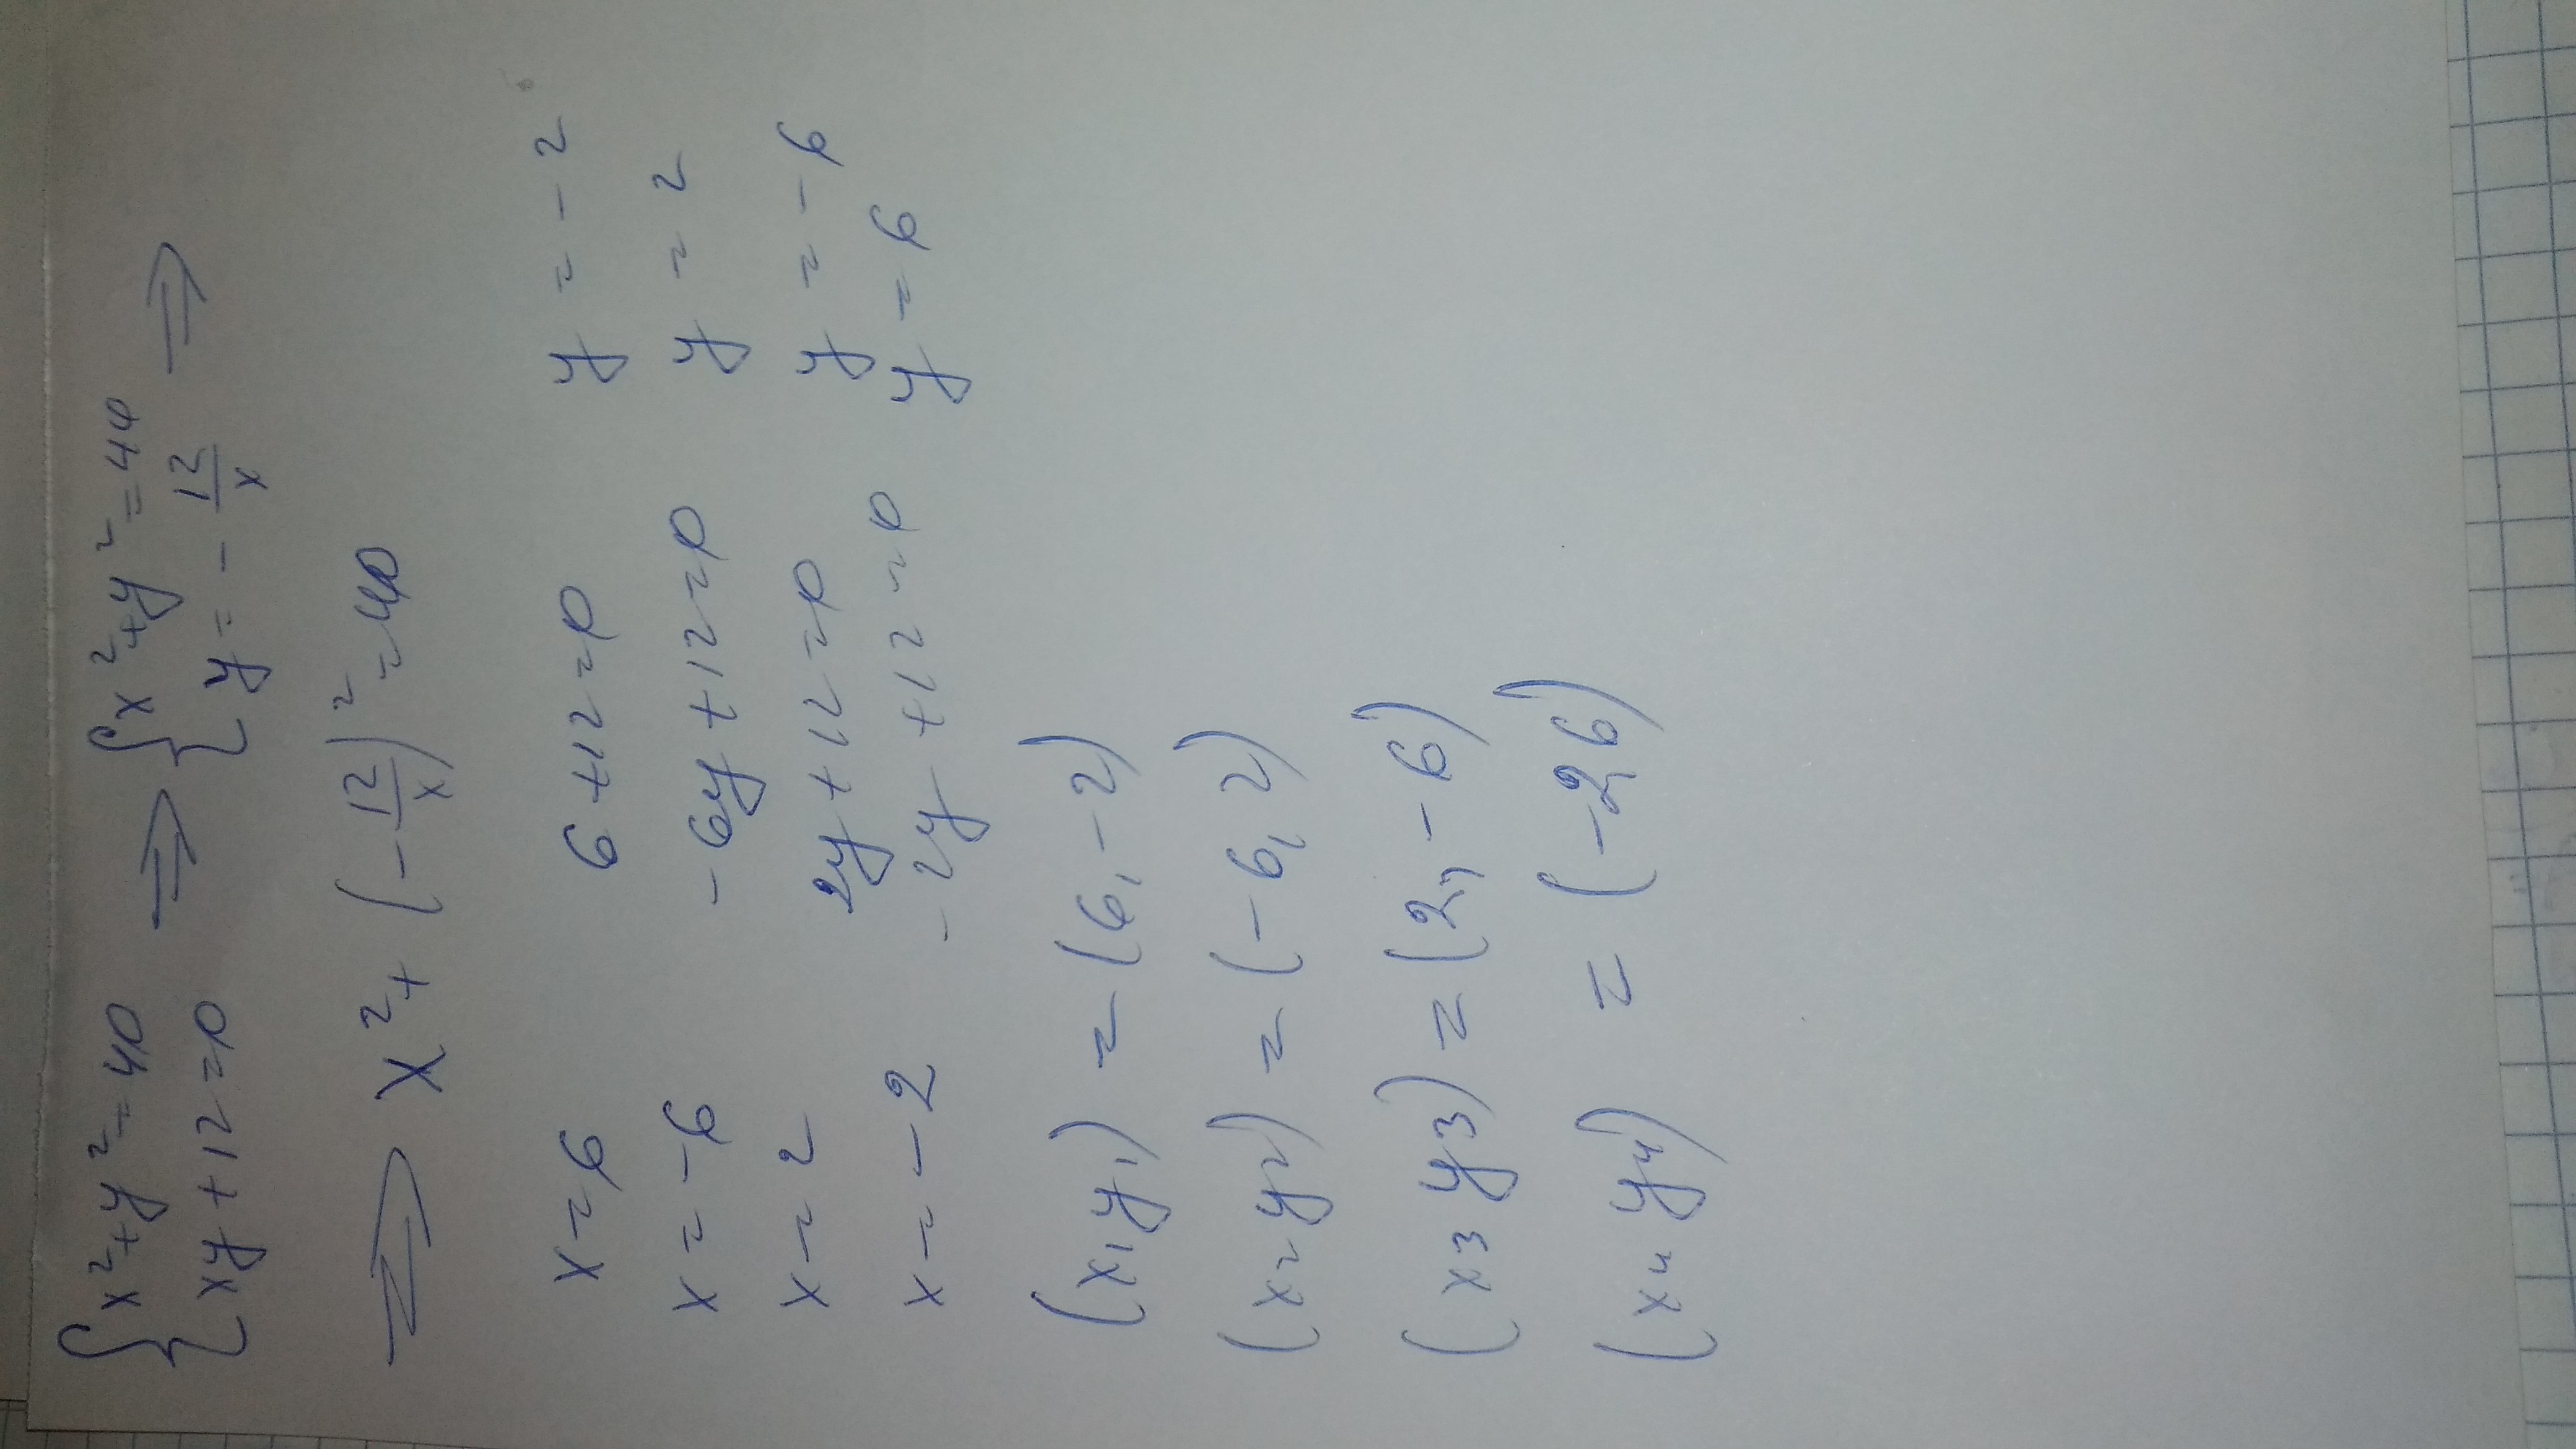 { x² + y² = 40 ⇒ { x² + y² = 40 ⇒
{ xy + 12 = 0 { y = - 12/x
⇒ x² + (- 12/x)² = 40
x = 6 6 + 12 = 0 y = - 2
x = - 6 - 6y + 12 = 0 y = 2
x = 2 2y + 12 = 0 y = - 6
x = - 2 - 2y + 12 = 0 y = 6
(x₁ y₁) = (6, - 2)
(x₂ y₂) = (- 6, 2)
(x₃ y₃) = (2, - 6)
(x₄ y₄) = (- 2, 6)